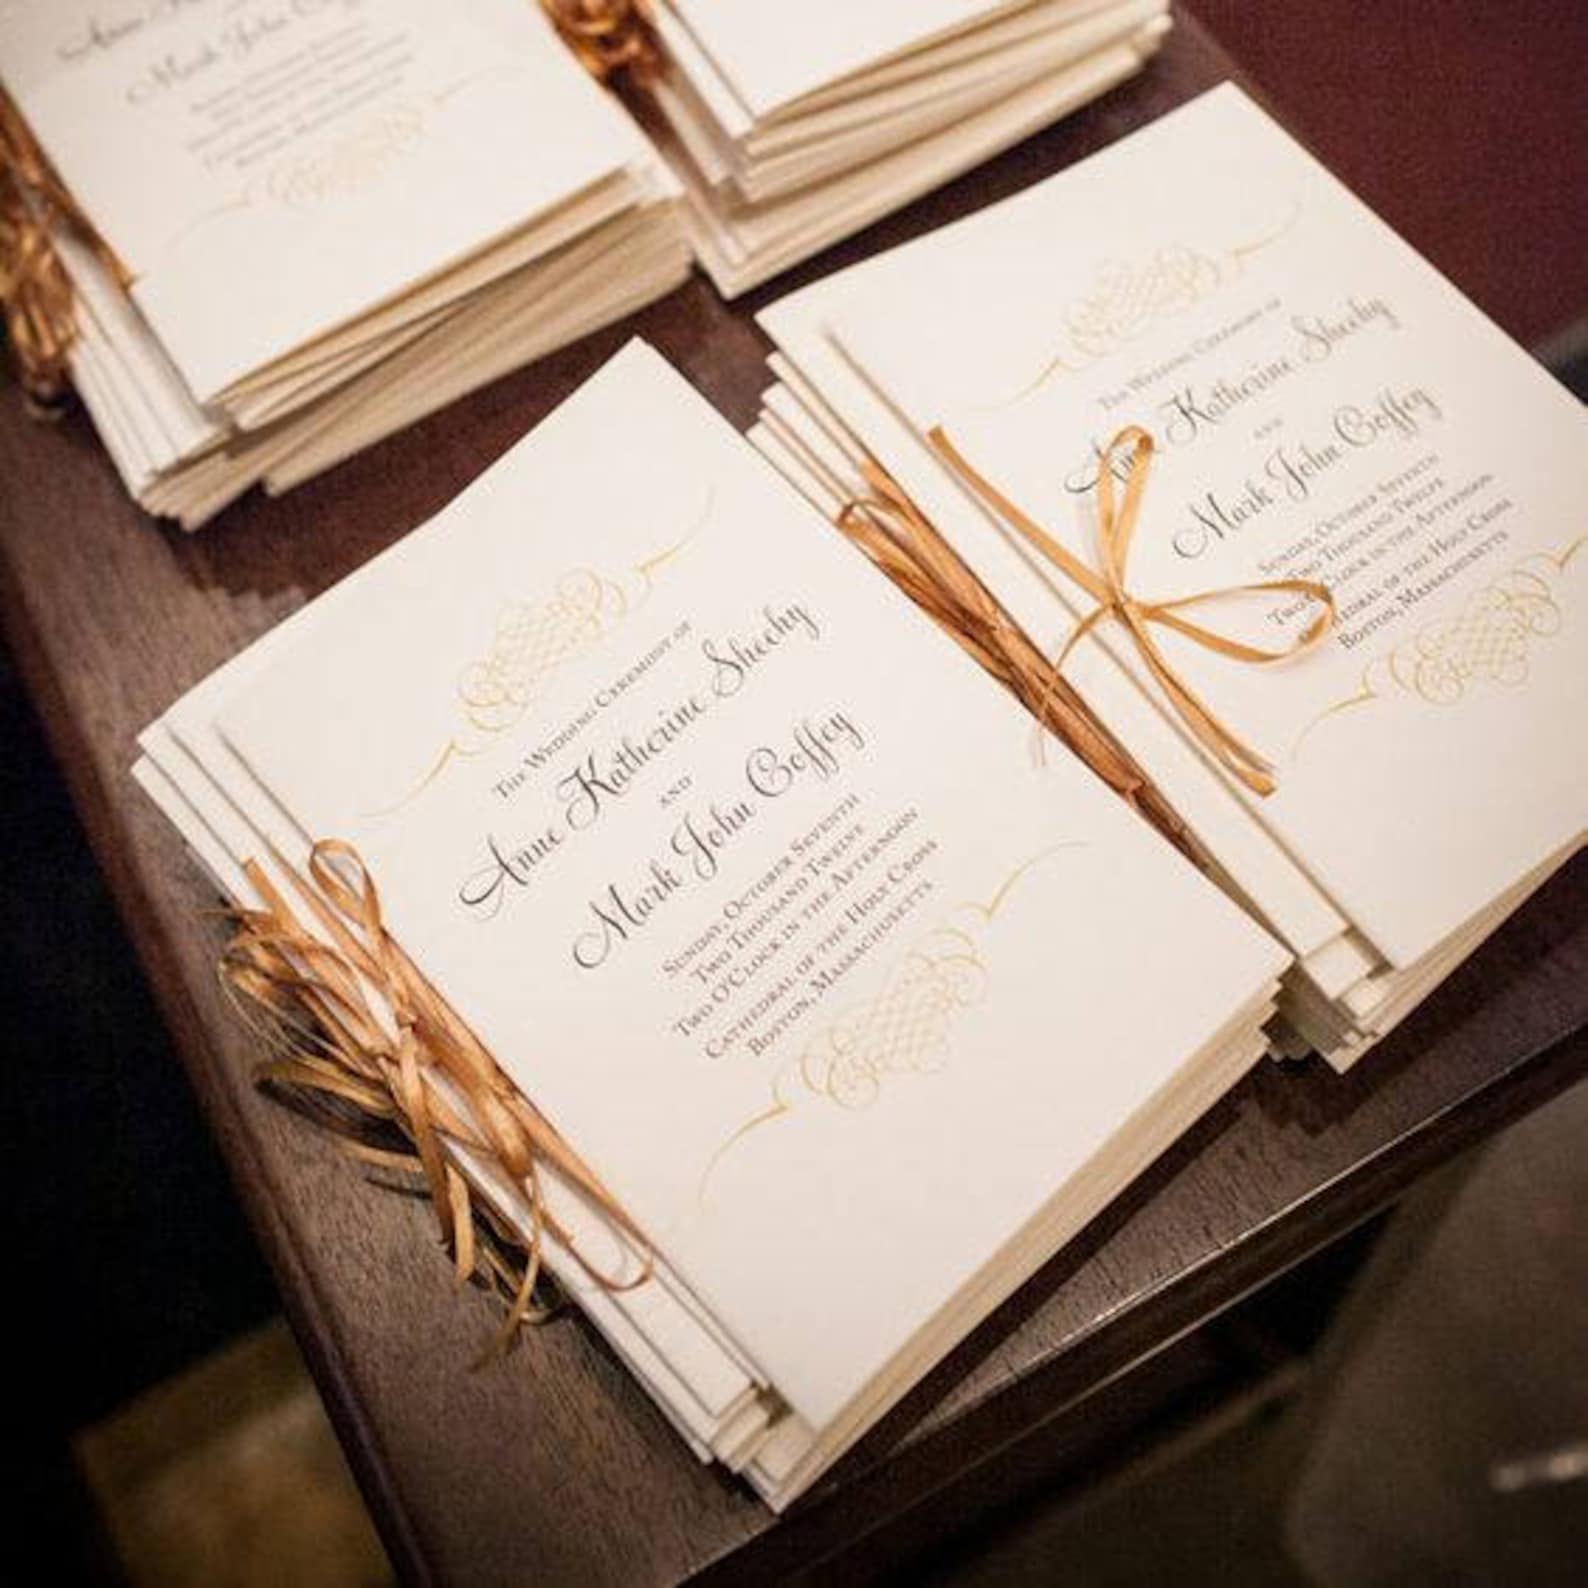 Anne
Mark John
The Wedding Ceremony of
Anne Katherine Sheehy
and
Mark John Coffey
Sunday, October Seventh
Two Thousand Twelve
Two O'Clock in the Afternoon
Cathedral of the Holy Cross
Boston, Massachusetts
The Wedding Ceremony of
Anne Katherine Sheehy
and
Mark John Coffey
Sunday, October Seventh
Two Thousand Twelve
Two O'Clock in the Afternoon
Cathedral of the Holy Cross
Boston, Massachusetts